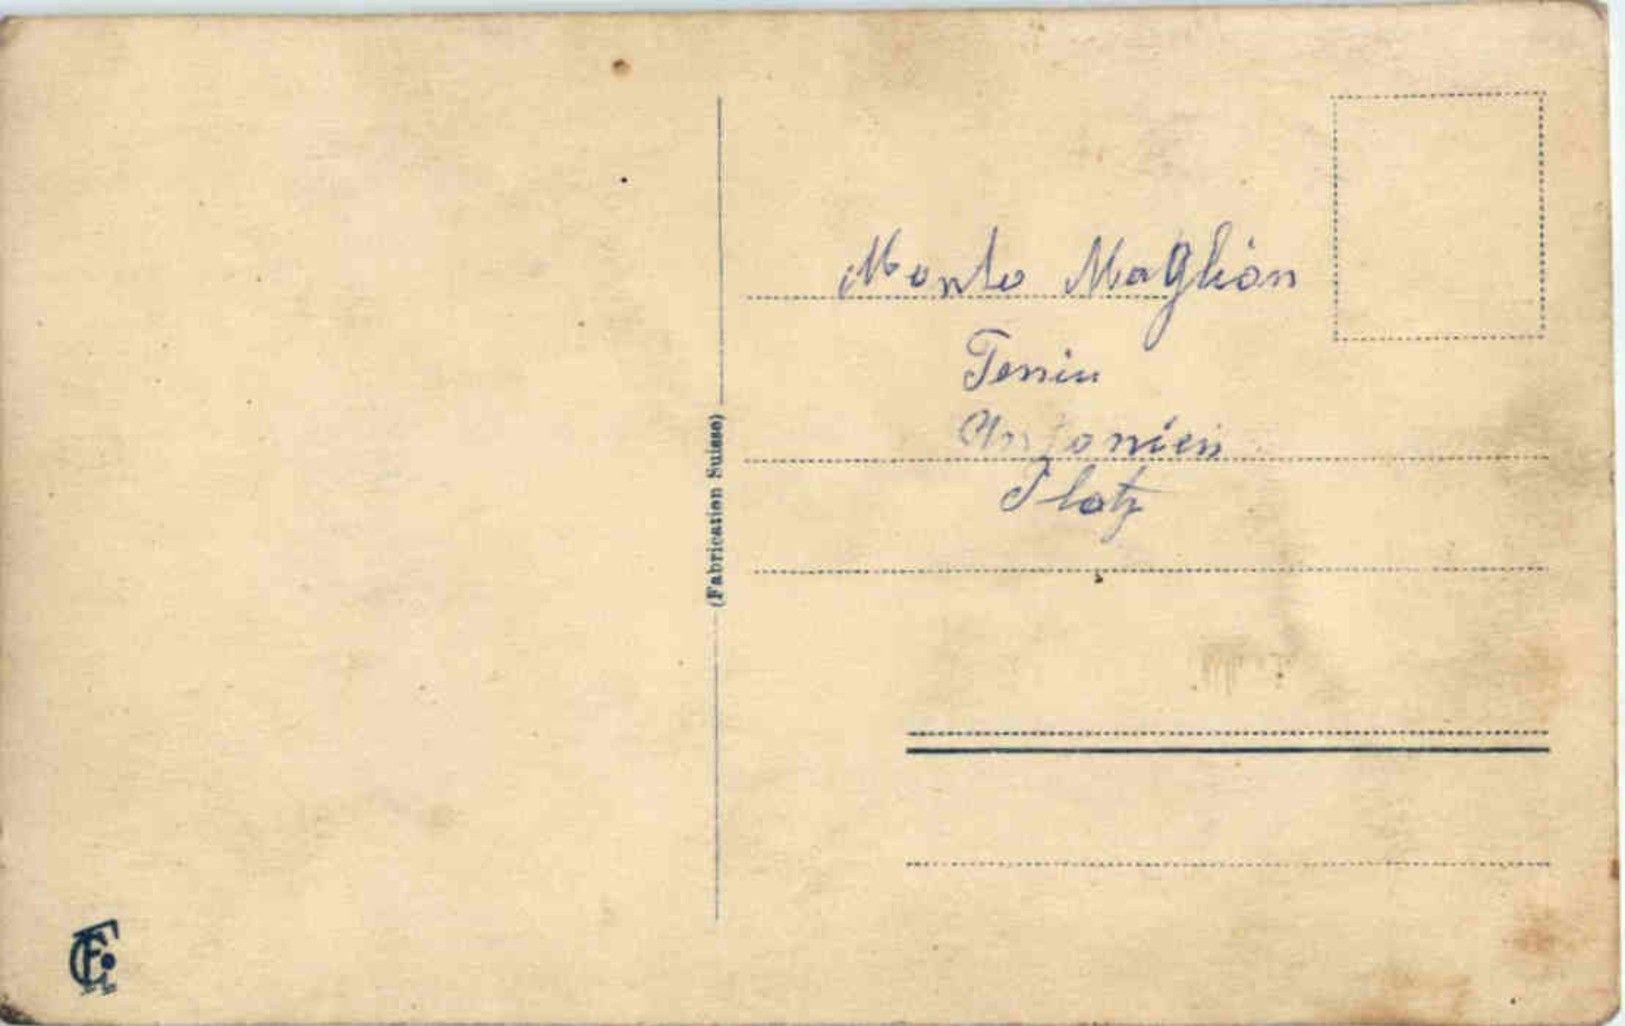 Monto Maglión
Tenniu
Antonien
Platz
(Fabrication Suisse)